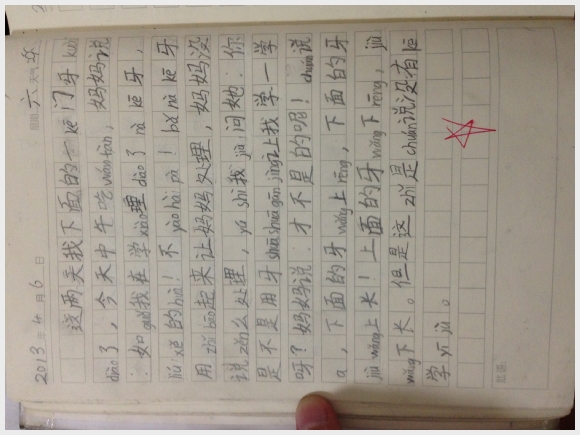 2013年4月6日 星期 六 天气
这两天我下面的一kē门牙kuài
diào了，今天中午吃wǔ fàn，妈妈说
：如guǒ我在学xiào理diào了nà kē牙，
liú xě的huà！不yào hài pà！bǎ nà kē牙
用zhǐ bāo起来让妈妈处理，妈妈没
说zěn么处理，yú shì我jiù问她：你
是不是用牙shuā shuā gān jìng让我学一学
呀？妈妈说：才不是的呢！chuán说
a，下面的牙wǎng上rēng，下面的牙
jiù wǎng上长！上面的牙wǎng下rēng，jiù
wǎng下长。但是这zhǐ是chuán说没有kē
学yī jù。
批语：